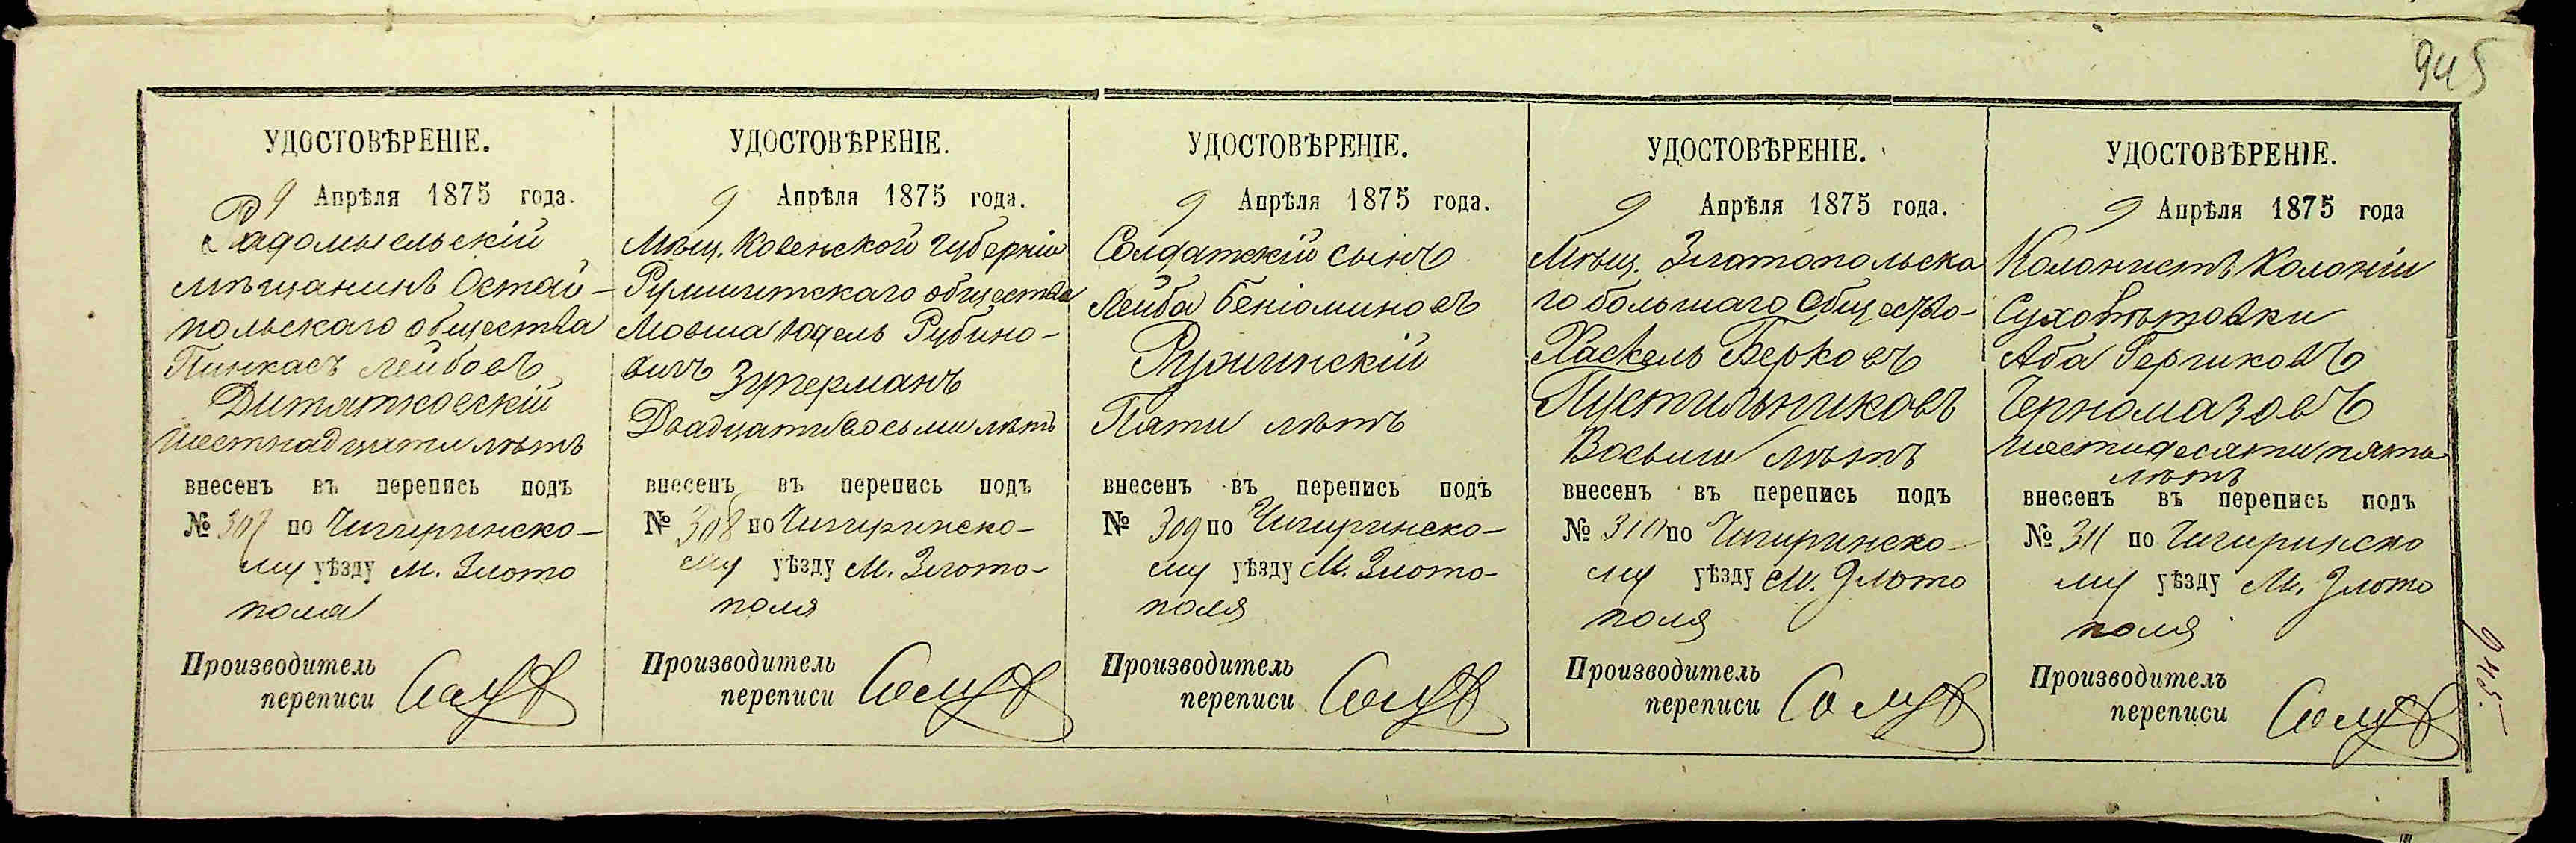 945
УДОСТОВѢРЕНІЕ.
9 Апрѣля 1875 года.
Радомысельскій
мѣщанинъ Остай-
польскаго общества
Пинкасъ Лейбовъ
Дитятковскій
шестнадцати лѣтъ
внесенъ въ перепись подъ
№ 307 по Чигиринско-
му уѣзду М. Злото
поля
Производитель
переписи
УДОСТОВѢРЕНІЕ.
9 Апрѣля 1875 года.
Мѣщ. Ковенской губерніи
Румшитскаго общества
Мовша Юдель Рубино-
вичъ Зуперманъ
Двадцати восьми лѣтъ
внесенъ въ перепись подъ
№ 308 по Чигиринско-
му уѣзду М. Злото-
поля
Производитель
переписи
УДОСТОВѢРЕНІЕ.
9 Апрѣля 1875 года.
Солдатскій сынъ
Лейба Беніоминовъ
Ружинскій
Пяти лѣтъ
внесенъ въ перепись подъ
№ 309 по Чигиринско-
му уѣзду М. Злото-
поля
Производитель
переписи
УДОСТОВѢРЕНІЕ.
9 Апрѣля 1875 года.
Мѣщ. Златопольска
го большаго общество-
Хаскель Берковъ
Пустильниковъ
Восьми лѣтъ
внесенъ въ перепись подъ
№ 310 по Чигиринско-
му уѣзду М. Злото
поля
Производитель
переписи
УДОСТОВѢРЕНІЕ.
9 Апрѣля 1875 года
Колонистъ Колоніи
Аба Гершковъ
Черномазовъ
шестидесяти пяти
лѣтъ
внесенъ въ перепись подъ
№ 311 по Чигиринско
му уѣзду М. Злото
поля
Производитель
переписи
945.